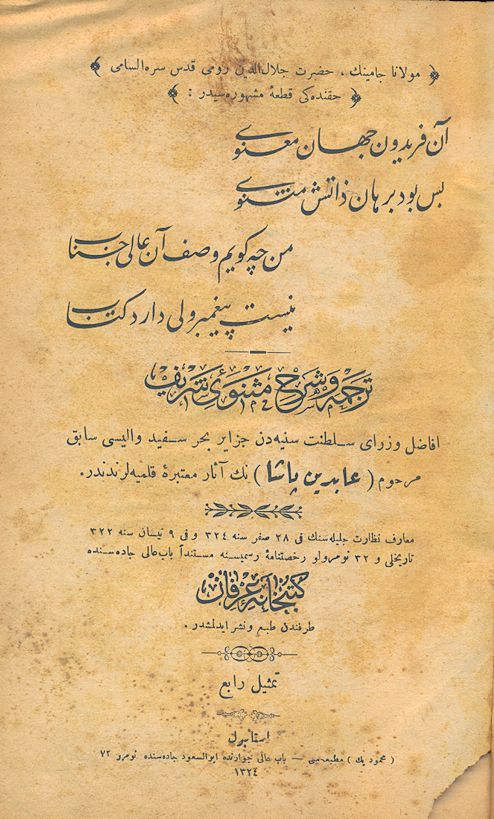 مولانا جامينك ، حضرت جلال الدين رومى قدس سره السامى
حقنده كى قطعهٔ مشهوره سيدر :
آن فريدون جهان معنوى
بس بود برهان ذاتش مثنوى
من چه كويم وصف آن عالى جناب
نيست پيغمبر ولى دارد كتاب
ترجمه و شرح مثنوئ شريف
افاضل وزراى سلطنت سنيه دن جزاير بحر سفيد واليسى سابق
مرحوم ( عابدين پاشا ) نك آثار معتبرهٔ قلميه لرندندر.
معارف نظارت جليله سنك فى ٢٨ صفر سنه ٣٢٤ و فى ٩ نيسان سنه ٣٢٢
تاريخلى و ٣٢ نومرولو رخصتنامهٔ رسميسنه مستنداً باب عالى جاده سنده
كتبخانهٔ عرفان
طرفندن طبع و نشر ايدلمشدر .
تمثيل رابع
استانبول
( محمود بك ) مطبعه سى — باب عالى جوارنده ابو السعود جاده سنده نومرو ٧٢
١٣٢٤